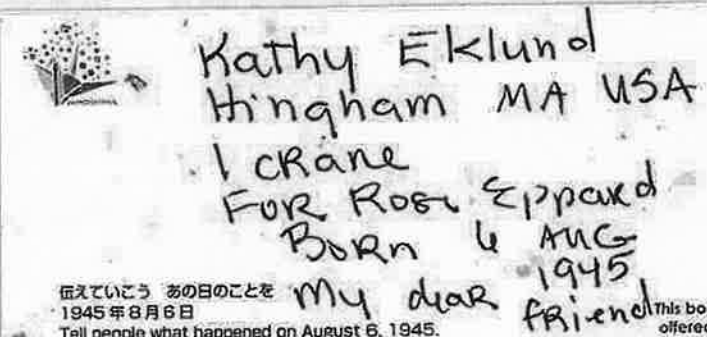 Kathy Eklund
Hingham MA USA
1 CRane
FOR Rose Eppard
BORn 6 AUG
1945
My deaR fRiend
伝えていこう あの日のことを
1945年8月6日
Tell people what happened on August 6, 1945.
This bo
offered